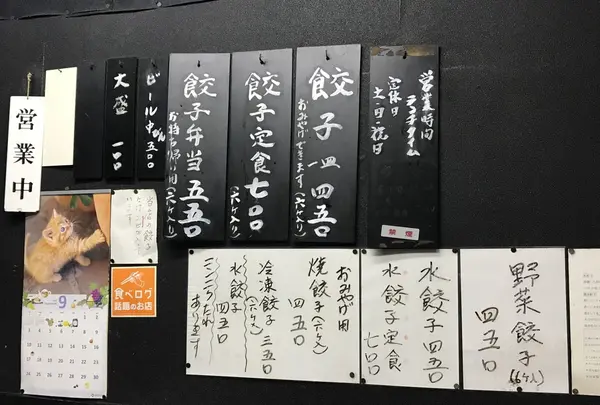 営業時間
ランチタイム
定休日
土・日・祝日
禁煙
餃子 一皿 四五〇
おみやげできます(六ケ入)
餃子定食 七〇〇
(六ケ入り)
餃子弁当 五五〇
お持ち帰り用(六ケ入り)
ビール 中びん 五〇〇
大盛 一〇〇
営業中
野菜餃子(6ケ入)
四五〇
水餃子 四五〇
水餃子定食
七〇〇
おみやげ用
焼餃子(六ケ入)
四五〇
冷凍餃子 三五〇
(六ケ入)
水餃子 四五〇
ニンニクたれ
あります
9
食べログ
話題のお店